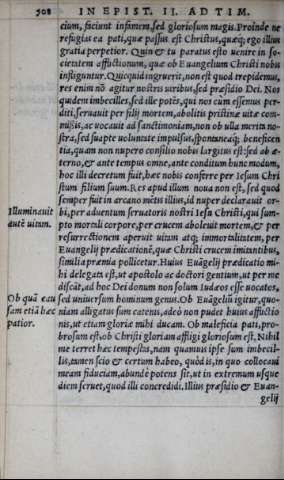 508 IN EPIST. II. AD TIM.
cium, faciunt infamem, sed gloriosum magis. Proinde ne
refugias ea pati, quæ passus est Christus, quæq; ego illius
gratia perpetior. Quin & tu paratus esto uenire in so-
cietatem afflictionum, quæ ob Euangelium Christi nobis
infliguntur. Quicquid ingruerit, non est quod trepidemus,
res enim nō agitur nostris uiribus, sed præsidio Dei. Nos
quidem imbecilles, sed ille potēs, qui nos cum essemus per-
diti, seruauit per filij mortem, abolitis pristinæ uitæ com-
missis, ac uocauit ad sanctimoniam, non ob ulla merita no-
stra, sed suapte uoluntate impulsus, spontaneaq; beneficen
tia, quam non nuper consilio nobis largitus est: sed ab æ-
terno, & ante tempus omne, ante conditum hunc modum,
hoc illi decretum fuit, hæc nobis conferre per Iesum Chri
stum filium suum. Res apud illum noua non est, sed quod
semper fuit in arcano mētis illius, id nuper declarauit or-
Illuminauit bi, per aduentum seruatoris nostri Iesu Christi, qui sum-
autē uitam. pto mortali corpore, per crucem aboleuit mortem, & per
resurrectionem aperuit uitam atq; immortalitatem, per
Euangelij prædicationē, quæ Christi crucem imitantibus,
similia præmia pollicetur. Huius Euāgelij prædicatio mi-
hi delegata est, ut apostolo ac doctori gentium, ut per me
discāt, ad hoc Dei donum non solum Iudæos esse uocatos,
Ob quā cau sed uniuersum hominum genus. Ob Euāgeliū igitur, quo-
sam etiā hæc niam alligatus sum catenis, adeò non pudet huius afflictio
patior. nis, ut etiam gloriæ mihi ducam. Ob maleficia pati, pro-
brosum est, ob Christi gloriam affligi gloriosum est. Nihil
me terret hæc tempestas, nam quamuis ipse sum imbecil-
lis, tamen scio & certum habeo, quòd is, in quo collocaui
meam fiduciam, abundè potens sit, ut in extremum usque
diem seruet, quod illi concredidi. Illius præsidio & Euan-
gelij